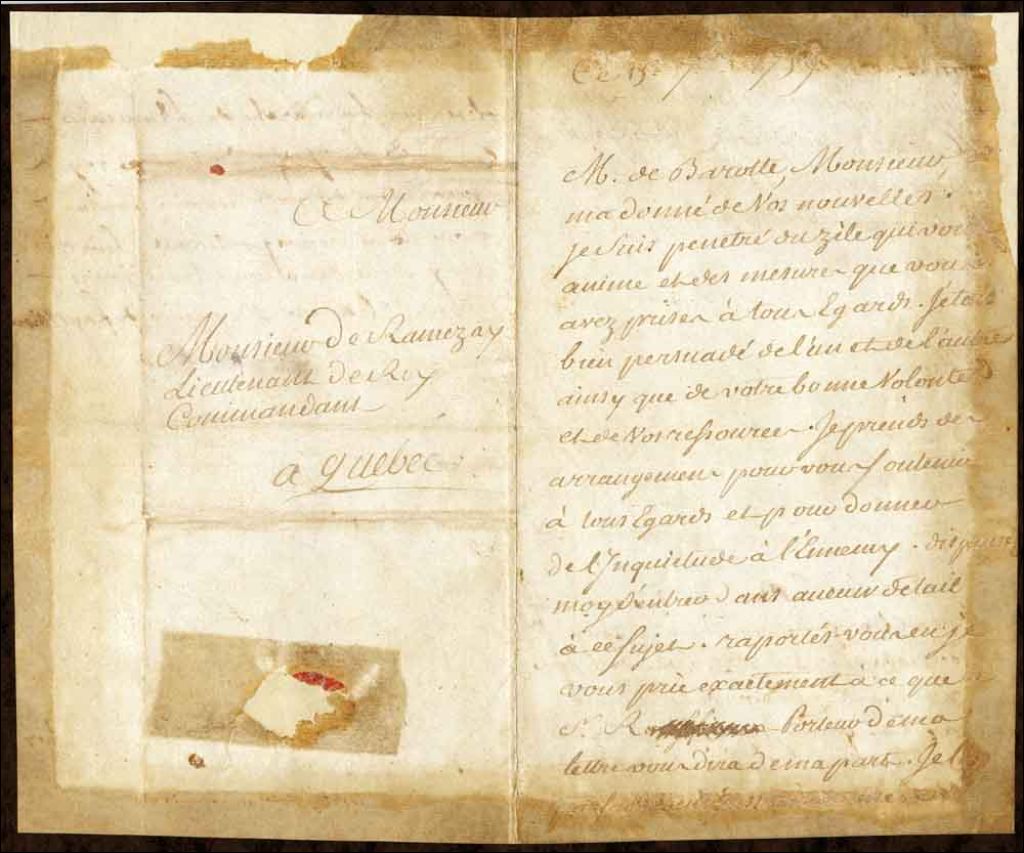 A Monsieur
Monsieur De Ramezay
Lieutenant De Roy
Commandant
a Quebec
Ce 15e 7 1759
M. de Barolle, Monsieur,
ma donné de Vos nouvelles.
je suis penetré du zéle qui vous
anime et des mesures que vous
avez prises à tous Egards. J'etois
bien persuadé de l'un et de l'autre
ainsy que de votre bonne Volonté
et de Vos ressources. Je prends des
arrangemens pour vous soutenir
à tous Egards et pour donner
de l'Inquietude à l'Ennemy. dispensés
moy d'entrer dans aucun detail
à ce sujet. raportés-vous en je
vous prie exactement à ce que
Sr. R Porteur de ma
lettre vous dira de ma part. Je l